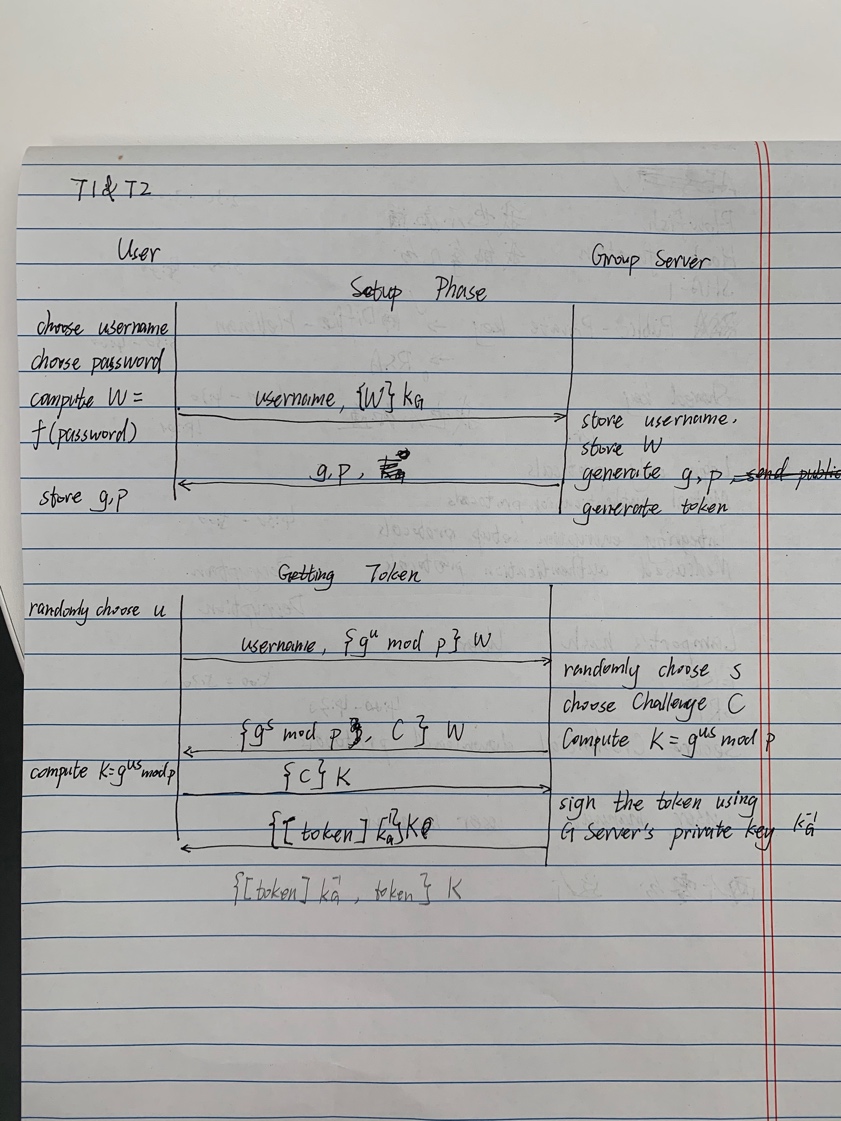 T1 & T2
User
Group Server
Setup Phase
choose username
choose password
compute W =
f(password)
username, {W} kG
store username.
store W
generate g,p, send public
generate token
g,p,
store g,p
Getting Token
randomly choose u
username, {g^u mod p} W
randomly choose s
choose Challenge C
Compute K = g^us mod p
{g^s mod p, C} W
compute K = g^us mod p
{C} K
sign the token using
G Server's private key kG^-1
{[token] kG^-1} K
{[token] kG^-1, token} K